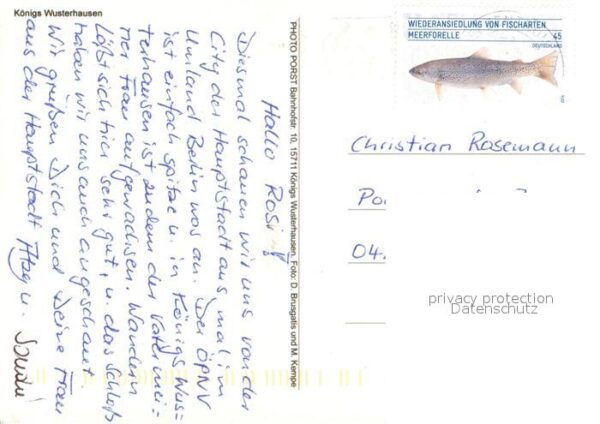 Königs Wusterhausen
Hallo Rosi
Diesmal schauen wir uns von der
City der Hauptstadt aus mal im
Umland Berlin was an. Der ÖPNV
ist einfach spitze u. in Königs Wus=
terhausen ist zudem der Vater mei=
ner Frau aufgewachsen. Wandern
läßt sich hier sehr gut, u. das Schloß
haben wir uns auch angeschaut.
Wir grüßen Dich und Deine Frau
aus der Hauptstadt u.
PHOTO PORST Bahnhofstr. 10, 15711 Königs Wusterhausen, Foto: D. Brusgatis und M. Kempe
WIEDERANSIEDLUNG VON FISCHARTEN
MEERFORELLE 45
DEUTSCHLAND
Christian Rosemann
Po
04.
privacy protection
Datenschutz